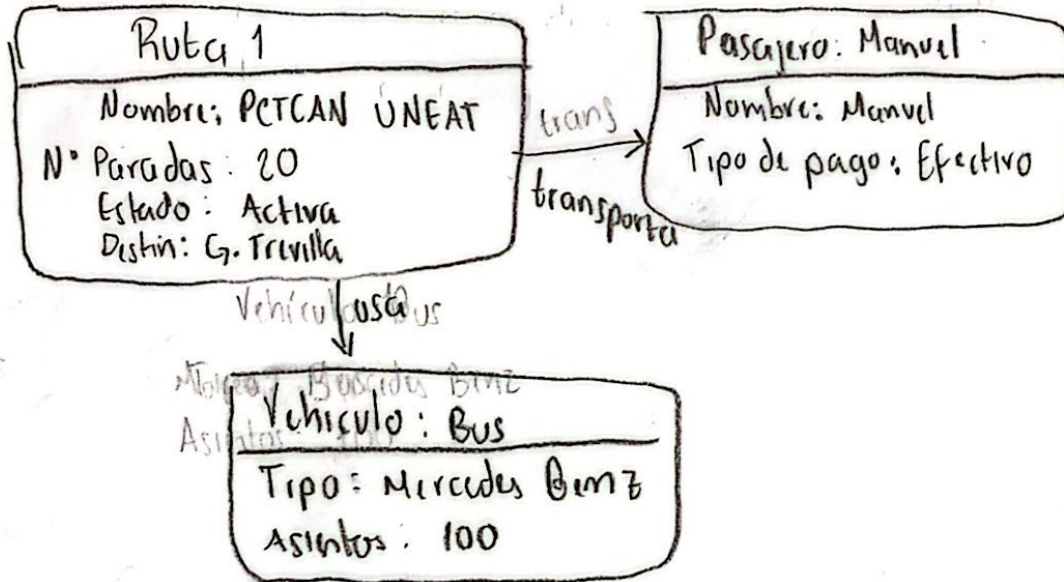 Ruta 1
Nombre: PCTCAN UNEAT
Nº Paradas: 20
Estado: Activa
Destin: G. Trevilla
trans
transporta
Pasajero: Manuel
Nombre: Manuel
Tipo de pago: Efectivo
usa
Vehículo Bus
Vehiculo: Bus
Asientos
Tipo: Mercedes Benz
Asientos: 100